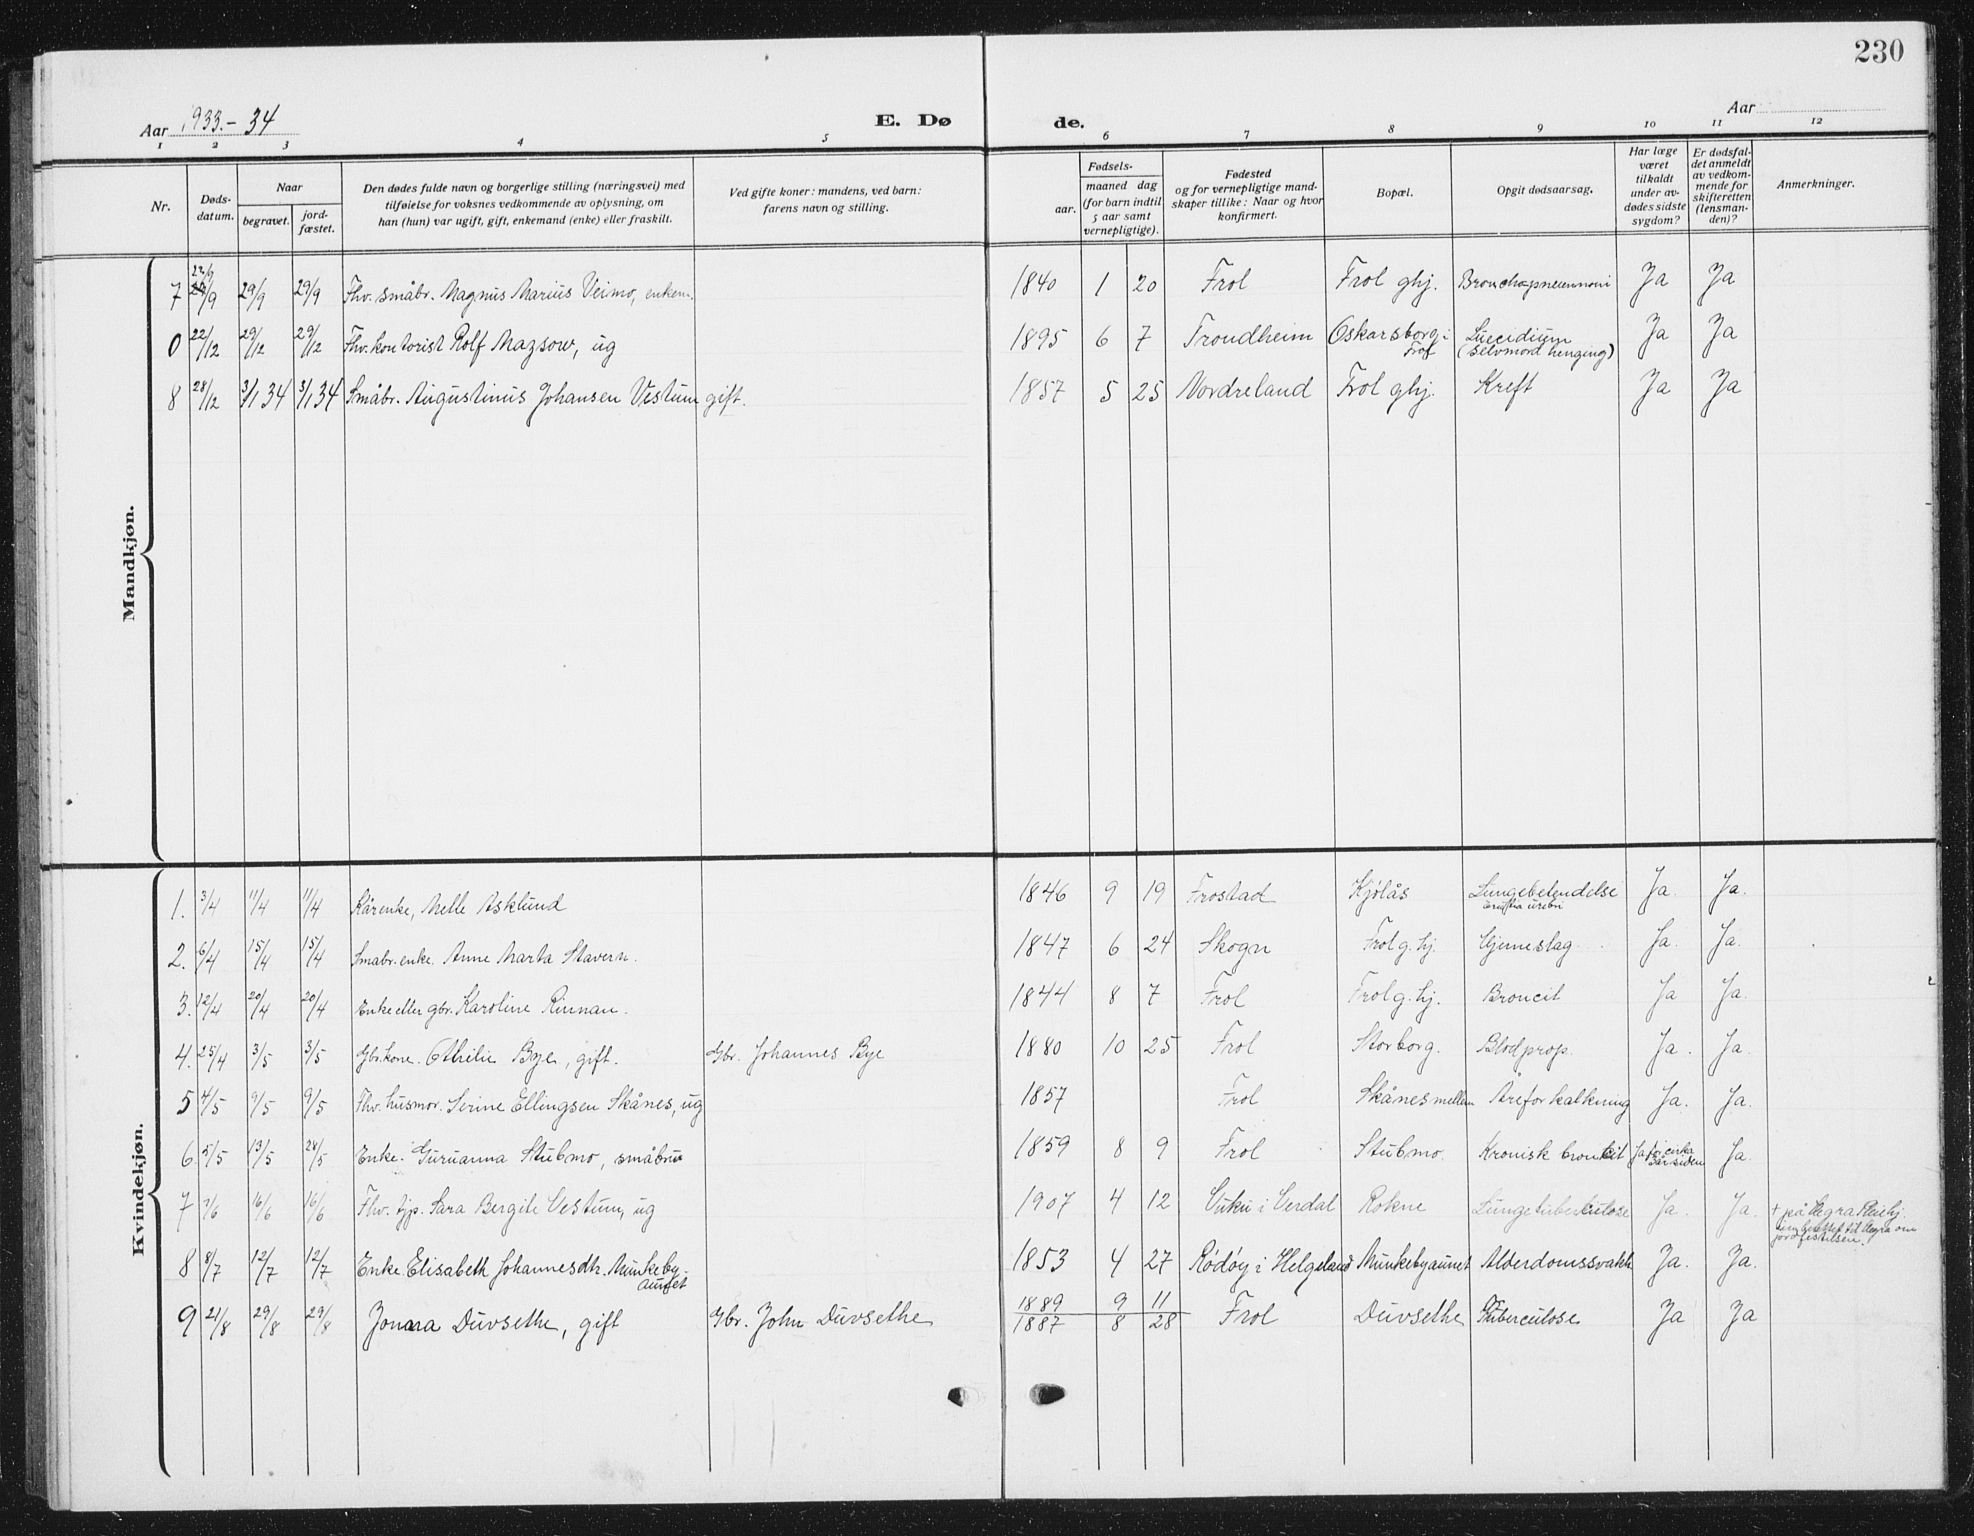 230
Aar 1933.-34
E. Dø
de.
Aar
1 2 3 4 5 6 7 8 9 10 11 12
Nr.
Døds-
datum.
Naar
begravet.
jord-
fæstet.
Den dødes fulde navn og borgerlige stilling (næringsvei) med
tilføielse for voksnes vedkommende av oplysning, om
han (hun) var ugift, gift, enkemand (enke) eller fraskilt.
Ved gifte koner: mandens, ved barn:
farens navn og stilling.
Fødsels-
aar.
maaned dag
(for barn indtil
5 aar samt
vernepligtige).
Fødested
og for vernepligtige mand-
skaper tillike: Naar og hvor
konfirmert.
Bopæl.
Opgit dødsaarsag.
Har læge
været
tilkaldt
under av-
dødes sidste
sygdom?
Er dødsfal-
det anmeldt
av vedkom-
mende for
skifteretten
(lensman-
den)?
Anmerkninger.
Mandkjøn.
7 29/9 29/9 Fhv. småbr. Magnus Marius Veimo, enkem. 1840 1 20 Frol Frol ghj. Ja Ja
0 22/12 29/12 29/12 Fhv. kontorist Rolf Mazsow, ug 1895 6 7 Trondheim Oskarsborg i Ja Ja
Frol (Selvmord henging)
8 28/12 3/1 34 3/1 34 Småbr. Augustinus Johansen Vestum gift. 1857 5 25 Nordreland Frol ghj. Kreft Ja Ja
Kvindekjøn.
1. 3/4 11/4 11/4 Kårenke, Melle Asklund 1846 9 19 Frostad Kjølås Lungebetendelse Ja. Ja.
2. 6/4 15/4 15/4 Småbr. enke. Anne Marta Stavern. 1847 6 24 Skogn Frol g. hj. Hjerneslag Ja. Ja.
3. 12/4 20/4 20/4 Enke etter gbr. Karoline Rinnan. 1844 8 7 Frol Frol g. hj. Broncit Ja Ja.
4. 25/4 3/5 3/5 Gbr. kone. Othilie Bye, gift. Gbr. Johannes Bye 1880 10 25 Frol Storborg. Blodprop. Ja. Ja.
5 4/5 9/5 9/5 Fhv. husmor. Serine Ellingsen Skånes, ug 1857 Frol Skånes mellem Åreforkalkning Ja. Ja.
6 5/5 13/5 24/5 Enke. Guruanna Stubmo, 1859 8 9 Frol Stubmo. Kronisk broncit Ja for cirka Ja.
siden
7 7/6 16/6 16/6 Fhv. tjp. Sara Bergite Vestum, ug 1907 4 12 Vuku i Verdal Rokne Lungetuberkulose Ja. Ja. + på Hegra Pleiehj.
til Hegra om
jordfestelsen.
8 8/7 12/7 12/7 Enke. Elisabeth Johannesdtr. Munkeby- 1853 4 27 Rødøy i Helgeland Munkebyaunet Alderdomssvakh Ja. Ja.
aunet
9 21/8 29/8 29/8 Jonara Duvsethe, gift Gbr. John Duvsethe 1889 9 11 Frol Duvsethe Tuberculose Ja Ja
1887 8 28